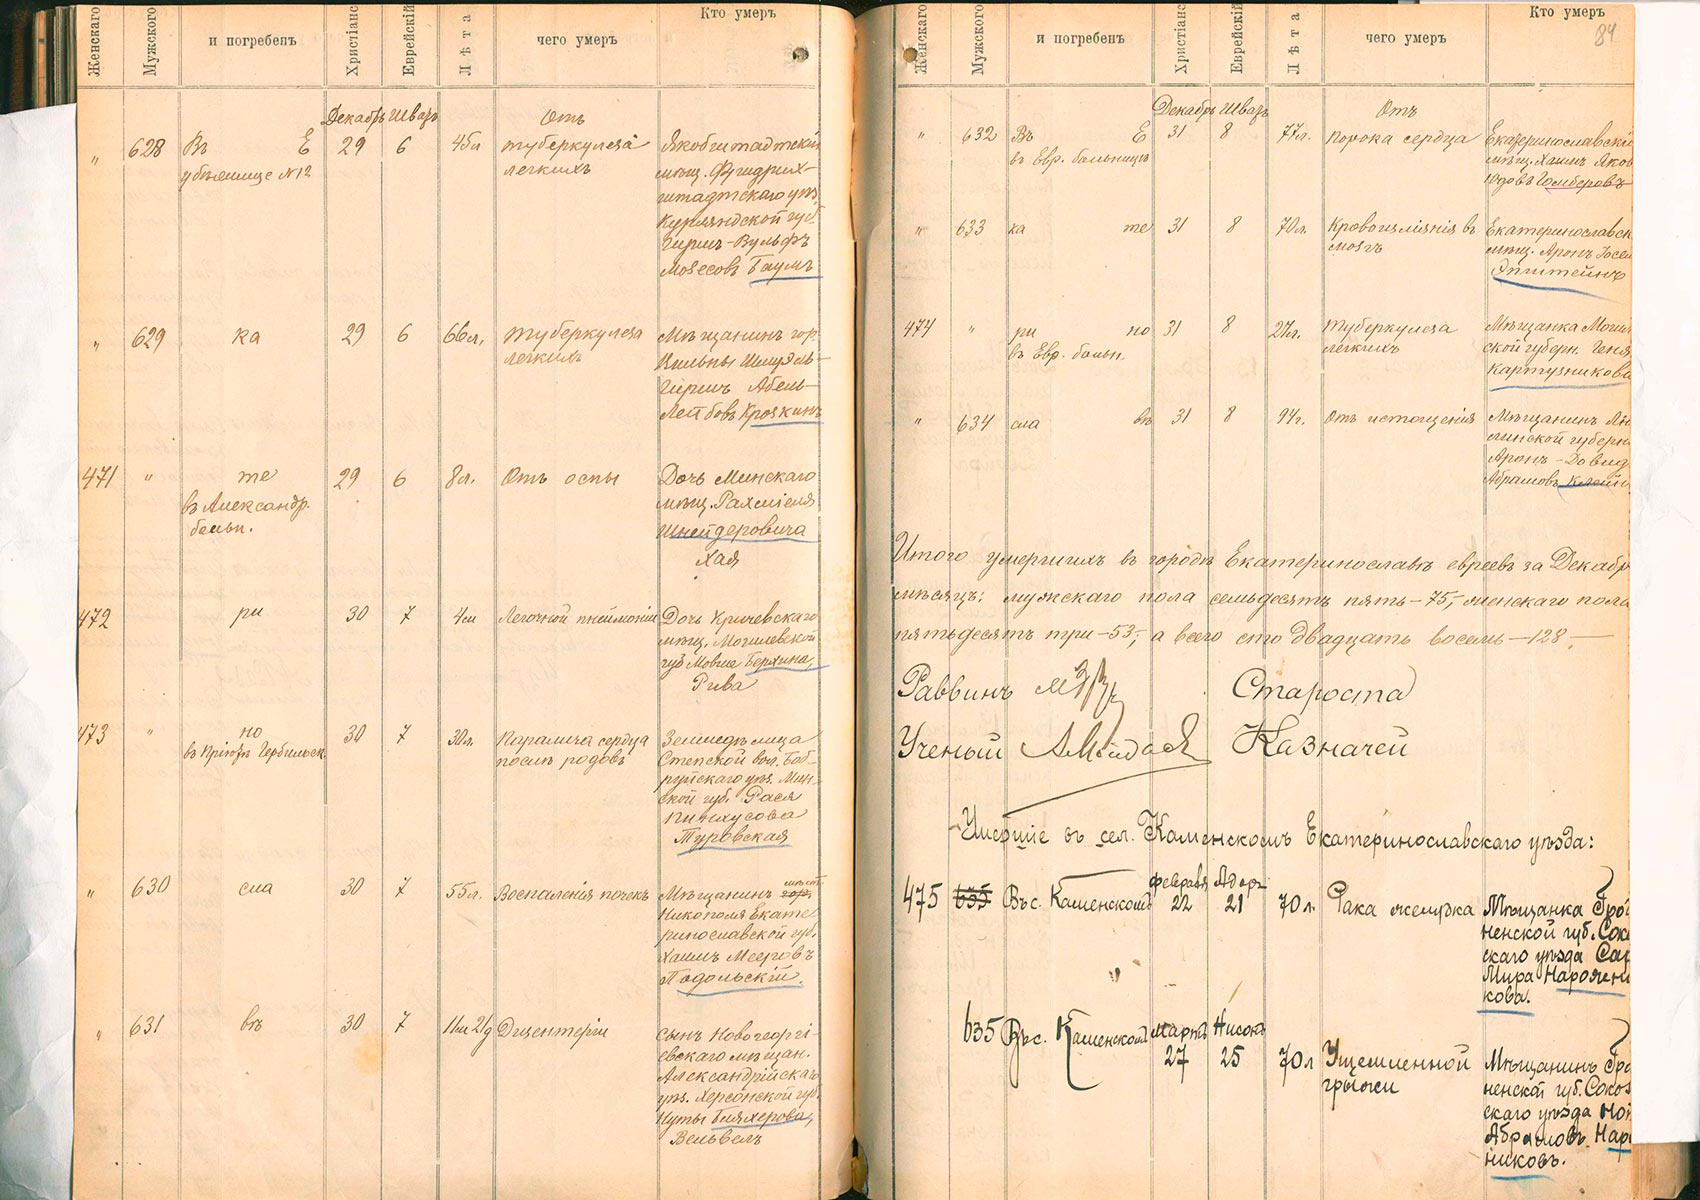 Женскаго Мужского и погребенъ Христіанс Еврейскій Лѣта чего умеръ Кто умеръ
Декабрь Шваръ Отъ
„ 628 Въ Е 29 6 45л туберкулеза Якобштадтскій
убѣжище №12 легкихъ мѣщ. Фридрих-
штадтскаго уѣз.
Курляндской губ.
Гиршъ-Вульфъ
Мовсесовъ Баумъ
„ 629 ка 29 6 66л. туберкулеза Мѣщанинъ гор.
легкихъ Вильны Шмуэль-
Гиршъ Абель-
Лейбовъ Крозкинъ
471 „ те 29 6 8л. Отъ оспы Дочь Минскаго
въ Александр. мѣщ. Рахміеля
больн. Шнейдеровича
Хая
472 ри 30 7 4м Легочной пнеймоніи Дочь Кричевскаго
мѣщ. Могилевской
губ Мовше Берхина,
Рива
473 „ но 30 7 30л. Паралича сердца Земледѣлица
въ Пріютѣ Гербильск. послѣ родовъ Степской вол. Боб-
руйскаго уѣз. Мин-
ской губ. Рася
Пинхусова
Туровская
„ 630 сла 30 7 55л. Воспаленія почекъ Мѣщанинъ мѣст.
Никополя Екате
ринославской губ.
Хаимъ Мееровъ
Подольскій.
„ 631 вѣ 30 7 11м 21д Дизентеріи Сынъ Новогеоргі-
евскаго мѣщан.
Александрійскаго
уѣз. Херсонской губ.
Нуты Бляхерова,
Вельвелъ
84
Женскаго Мужского и погребенъ Христіанс Еврейскій Лѣта чего умеръ Кто умеръ
Декабрь Шваръ Отъ
„ 632 Въ Е 31 8 77л. порока сердца Екатеринославскі
въ Евр. больницѣ мѣщ. Хаимъ Яков
Юдовъ Гомберовъ
„ 633 ка те 31 8 70л. Кровоизліянія въ Екатеринославск
мозгъ мѣщ. Аронъ Іосел
Эпштейнъ
474 „ ри но 31 8 27л. туберкулеза Мѣщанка Могил
въ Евр. больн. легкихъ ской губерн. Геня
Картузникова
„ 634 сла вѣ 31 8 94г. Отъ истощенія Мѣщанинъ
губерн
Аронъ-Довид
Абрамовъ Клейн
Итого умершихъ въ городѣ Екатеринославѣ евреевъ за Декабр
мѣсяцъ: мужскаго пола семьдесятъ пять-75,- женскаго пола
пятьдесятъ три-53,- а всего сто двадцать восемь-128.-
Раввинъ Староста
Ученый Казначей
Умершіе въ сел. Каменскомъ Екатеринославскаго уѣзда:
Февраля Адаръ
475 635 Въ с. Каменскомъ 22 21 70л. Рака желудка Мѣщанка Грод
ненской губ. Соко
скаго уѣзда Сар
Мира Нарожни
кова.
635 Въ с. Каменскомъ Марта Нисонъ
27 25 70л Ущемленной Мѣщанинъ Гро
грыжи ненской губ. Соко
скаго уѣзда Но
Абрамовъ Нар
никовъ.